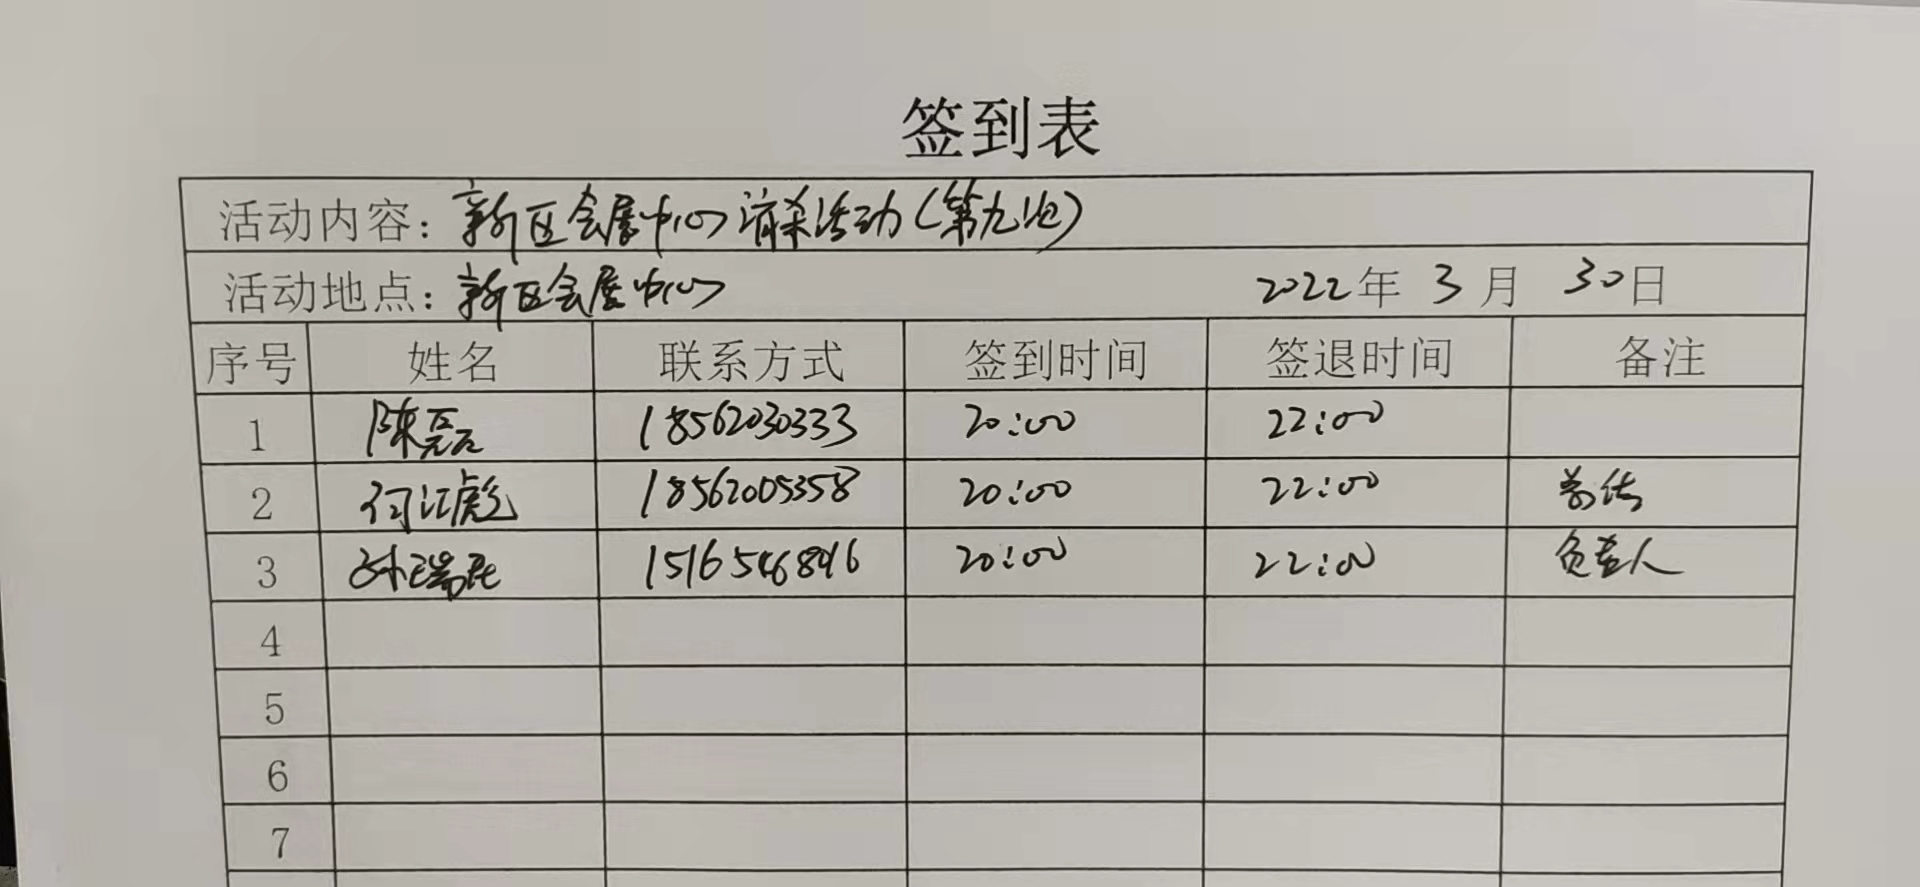 签到表
活动内容：新区会展中心消杀活动（第九次）
活动地点：新区会展中心 2022年 3月 30日
序号 姓名 联系方式 签到时间 签退时间 备注
1 陈磊 18562030333 20:00 22:00
2 18562005358 20:00 22:00
3 20:00 22:00 负责人
4
5
6
7